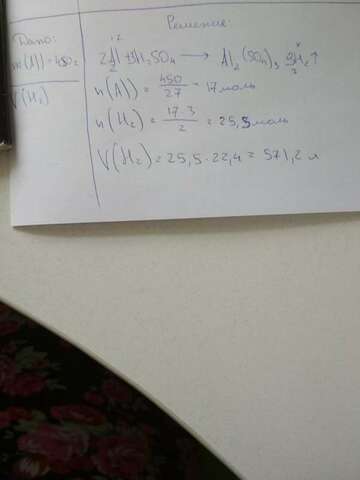 Решение:
Дано:
m(Al)=450г
V(H2)
12 x
2Al + 3H2SO4 → Al2(SO4)3 3H2↑
2 3
n(Al) = 450/27 = 17 моль
n(H2) = 17·3/2 = 25,5 моль
V(H2) = 25,5·22,4 = 571,2 л